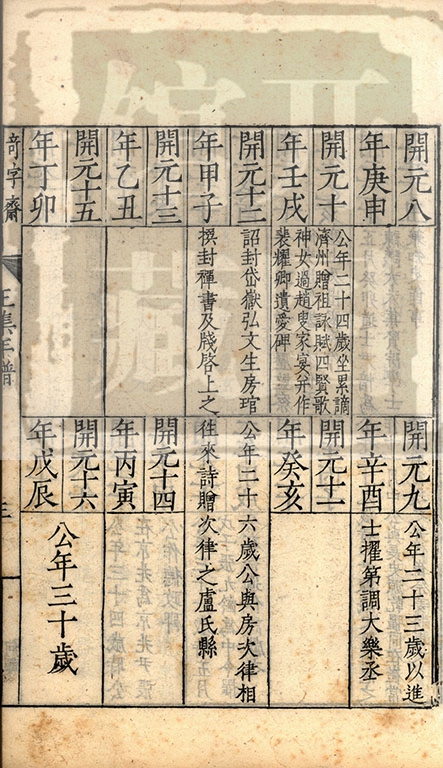 開元八
年庚申
開元十
年壬戌
公年二十四歲坐累謫
濟州贈祖詠賦四賢歌
神女過趙叟家宴并作
裴耀卿遺愛碑
開元十二
年甲子
詔封岱嶽弘文生房琯
撰封禪書及牋啓上之
開元十三
年乙丑
開元十五
年丁卯
開元九
年辛酉
公年二十三歲以進
士擢第調大樂丞
開元十一
年癸亥
公年二十六歲公與房次律相
往來詩贈次律之盧氏縣
開元十四
年丙寅
開元十六
年戊辰
公年三十歲
奇字齋
年譜
三